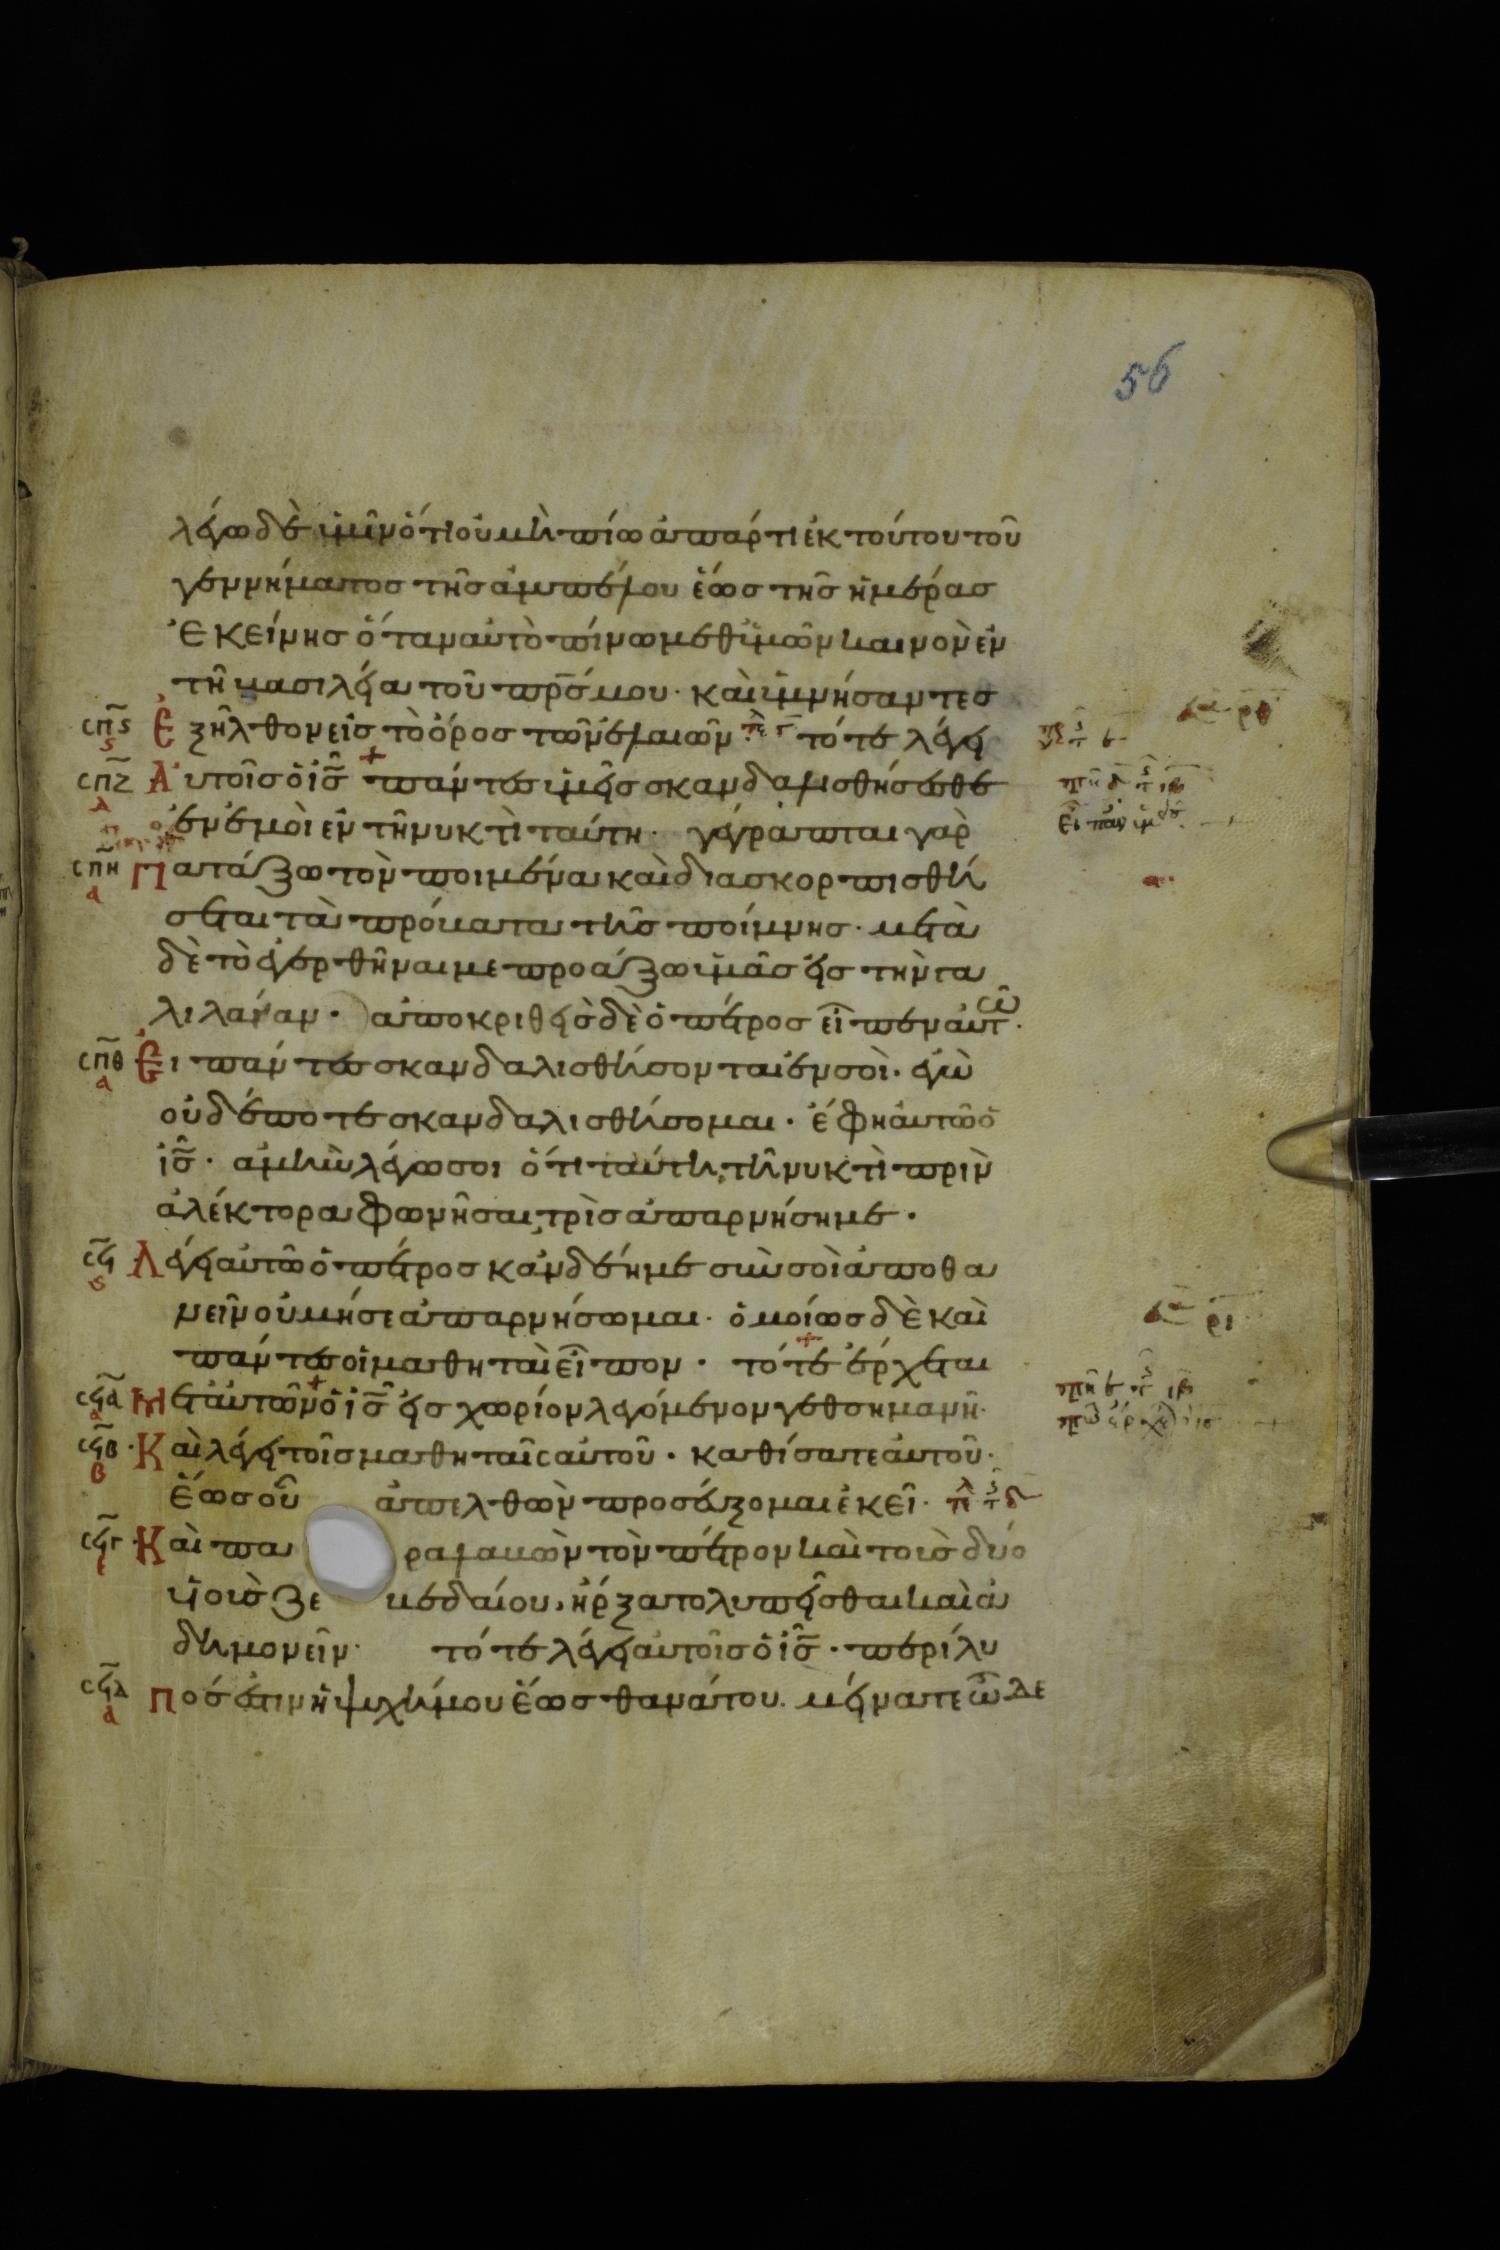 56
λέγω δὲ ὑμῖν ὅτι οὐ μὴ πίω ἀπάρτι ἐκ τούτου τοῦ
γεννήματος τῆς ἀμπέλου ἕως τῆς ἡμέρας
ἐκείνης ὅταν αὐτὸ πίνω μεθ ὑμῶν καινὸν ἐν
τῆ βασιλεία τοῦ πρσ μου· καὶ ὑμνήσαντες
σπς ς Ἐξῆλθον εἰς τὸ ὄρος τῶν ἐλαιῶν τότε λέγει
σπζ δ Αὐτοῖς ὁ ισ + πάντες ὑμεῖς σκανδαλισθήσεσθε
ἐν ἐμοὶ ἐν τῆ νυκτὶ ταύτη· γέγραπται γὰρ
σπη α Πατάξω τὸν ποιμένα καὶ διασκορπισθή
σεται τὰ πρόβατα τῆς ποίμνης· μετὰ
δὲ τὸ ἐγερθῆναι με προάξω ὑμᾶς εἰς τὴν γα
λιλαίαν· ἀποκριθεὶς δὲ ὁ πέτρος εἶπεν αὐτῶ·
σπθ α Εἰ πάντες σκανδαλισθήσονται ἐν σοὶ· ἐγὼ
οὐδέποτε σκανδαλισθήσομαι· ἔφη αὐτῶ ὁ
ισ· ἀμὴν λέγω σοι ὅτι ταύτη τῆ νυκτὶ πρὶν
ἀλέκτορα φωνῆσαι, τρὶς ἀπαρνήση με·
σϟ ς Λέγει αὐτῶ ὁ πέτρος κἂν δέη με σὺν σοὶ ἀποθα
νεῖν οὐ μή σε ἀπαρνήσωμαι· ὁμοίως δὲ καὶ
πάντες οἱ μαθηταὶ εἶπον· τότε + ἔρχεται
σϟα α Μετ αὐτῶν + ὁ ισ εἰς χωρίον λεγόμενον γεθσημανῆ·
σϟβ β Καὶ λέγει τοῖς μαθηταῖς αὐτοῦ· καθίσατε αὐτοῦ·
ἕως οὗ ἀπελθὼν προσεύξομαι ἐκεῖ·
σϟγ Καὶ παραλαβὼν τὸν πέτρον καὶ τοὺς δύο
υἱοὺς ζεβεδαίου, ἤρξατο λυπεῖσθαι καὶ ἀ
δημονεῖν· τότε λέγει αὐτοῖς ὁ ισ· περίλυ
σϟδ δ Πός ἐστιν ἡ ψυχή μου ἕως θανάτου· μείνατε ὧδε